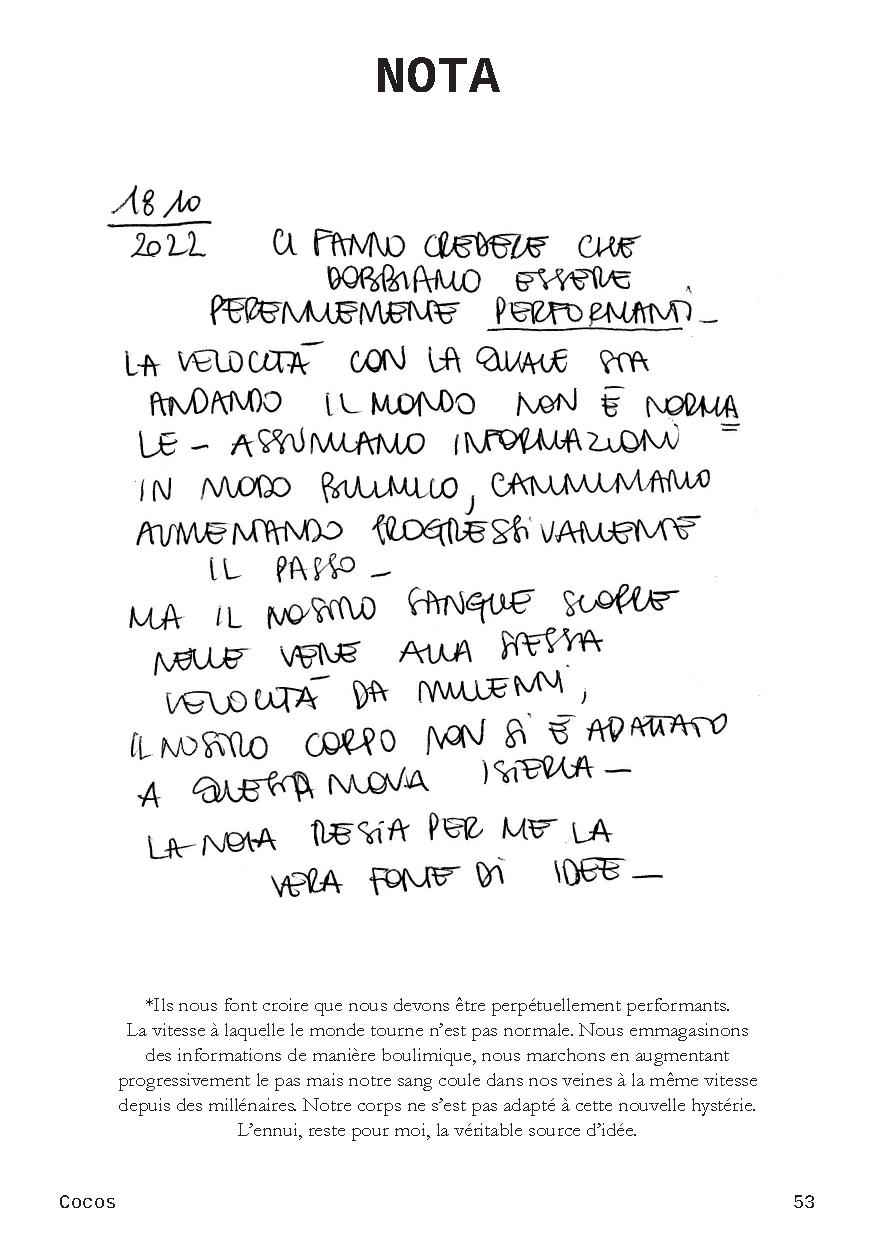 NOTA
18 10
2022
CI FANNO CREDERE CHE
DOBBIAMO ESSERE
PERENNEMENTE PERFORMANTI_
LA VELOCITÀ CON LA QUALE STA
ANDANDO IL MONDO NON È NORMA
LE - ASSUMIAMO INFORMAZIONI
IN MODO BULIMICO, CAMMINIAMO
AUMENTANDO PROGRESSIVAMENTE
IL PASSO _
MA IL NOSTRO SANGUE SCORRE
NELLE VENE ALLA STESSA
VELOCITÀ DA MILLENNI,
IL NOSTRO CORPO NON SI È ADATTATO
A QUESTA NUOVA ISTERIA -
LA NOIA RESTA PER ME LA
VERA FONTE DI IDEE _
*Ils nous font croire que nous devons être perpétuellement performants.
La vitesse à laquelle le monde tourne n'est pas normale. Nous emmagasinons
des informations de manière boulimique, nous marchons en augmentant
progressivement le pas mais notre sang coule dans nos veines à la même vitesse
depuis des millénaires. Notre corps ne s'est pas adapté à cette nouvelle hystérie.
L'ennui, reste pour moi, la véritable source d'idée.
Cocos
53